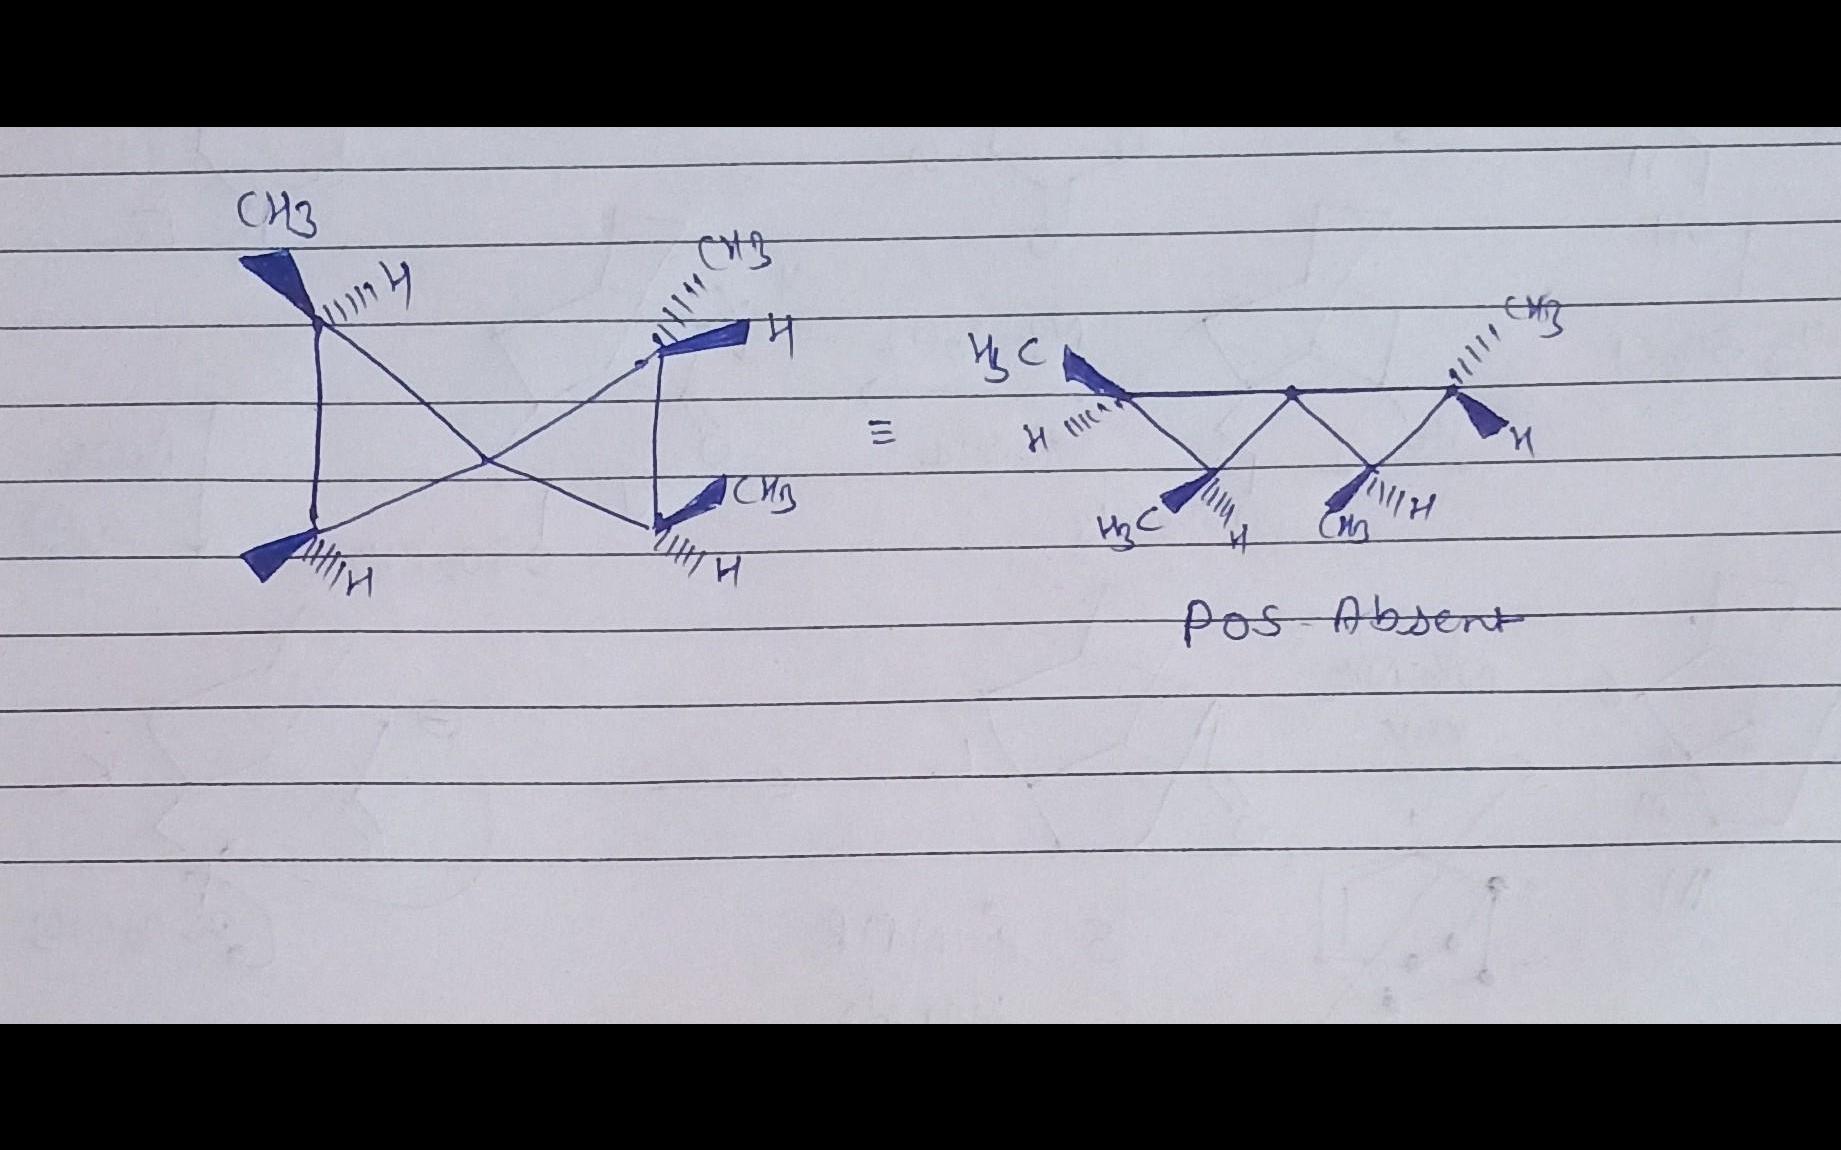 CH3
H
CH3
H
CH3
H
H
≡
H3C
H
H3C
H
CH3
H
CH3
H
POS - Absent